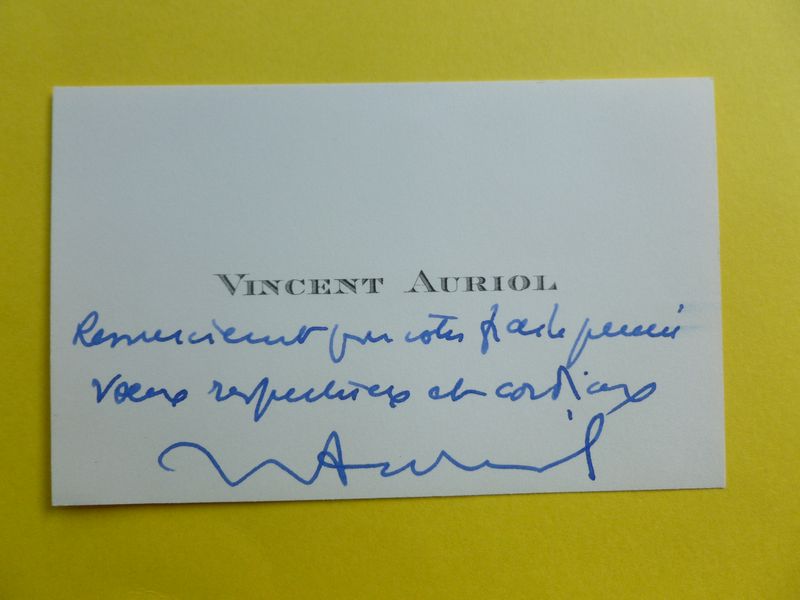 VINCENT AURIOL
Remerciements pour votre fidèle pensée
Voeux respectueux et cordiaux
VAuriol